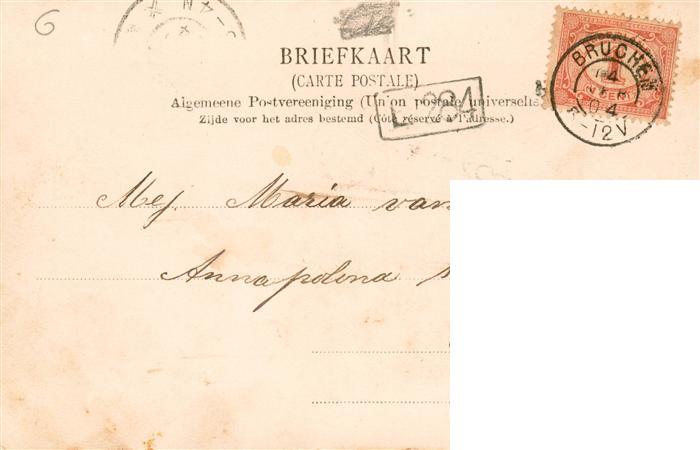 6
BRIEFKAART
(CARTE POSTALE)
Algemeene Postvereeniging (Union postale universelle
Zijde voor het adres bestemd (Côté réservé à l'adresse.)
BRUCHEM
4
04
-12V
Mej. Maria van
Anna polona